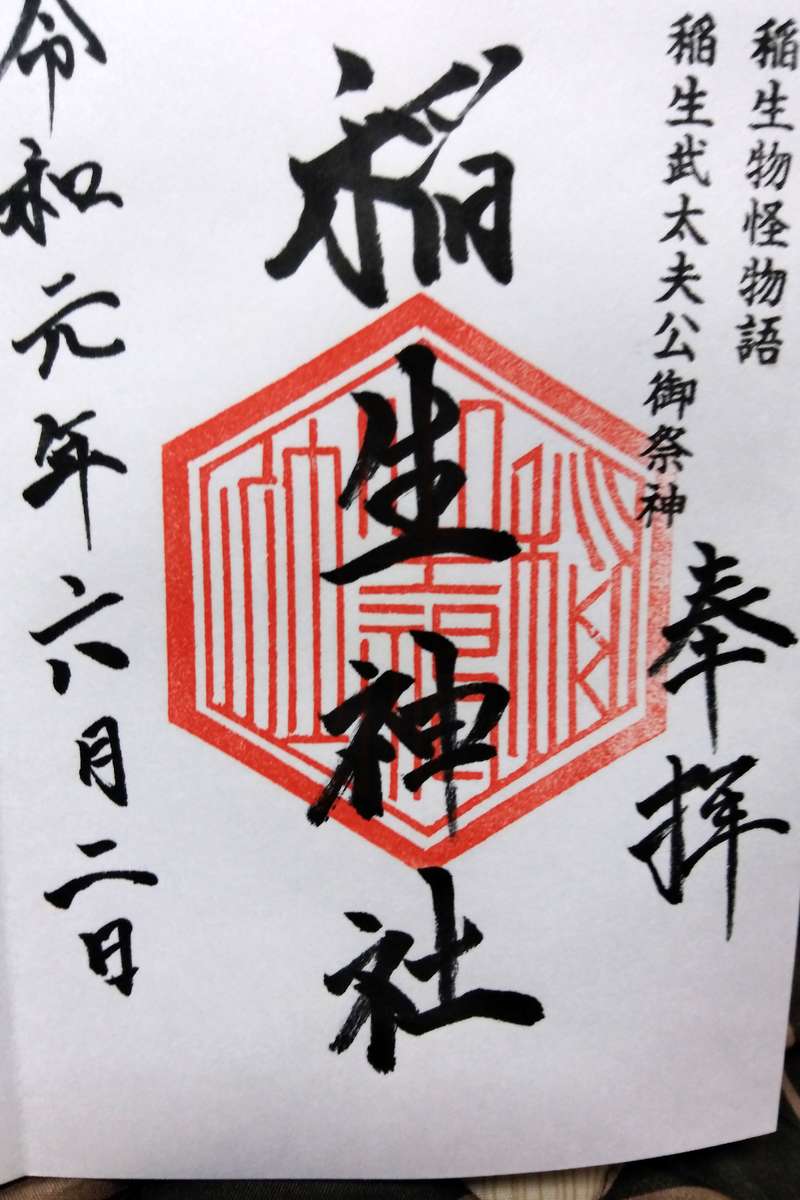 稲生物怪物語
稲生武太夫公御祭神
奉拝
稲生神社
令和元年六月二日